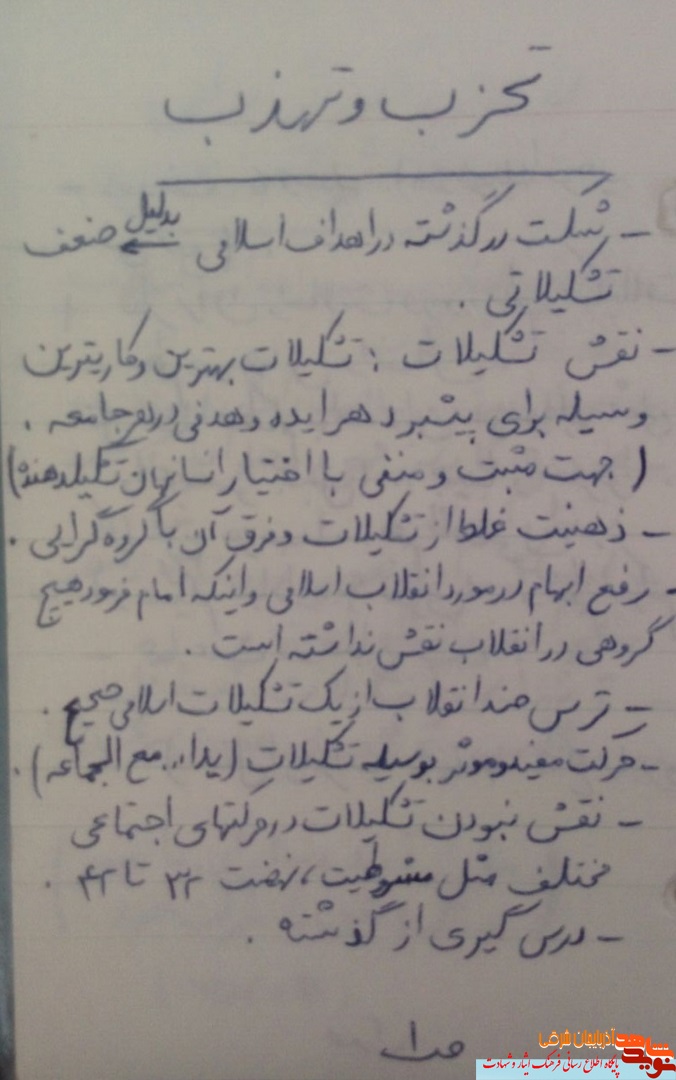 تحزب و تهذب
- شکست در گذشته در اهداف اسلامی بدلیل ضعف
تشکیلاتی .
- نقش تشکیلات : تشکیلات بهترین و کاریترین
وسیله برای پیشبرد هر ایده و هدفی در هر جامعه .
( جهت مثبت و منفی با اختیار انسانهای تشکیلدهنده )
- ذهنیت غلط از تشکیلات و فرق آن با گروه گرایی .
- رفع ابهام در مورد انقلاب اسلامی و اینکه امام فرمود هیچ
گروهی در انقلاب نقش نداشته است .
- ترس ضد انقلاب از یک تشکیلات اسلامی صحیح .
- حرکت مفید و موثر بوسیله تشکیلات ( یدا... مع الجماعه ) .
- نقش نبودن تشکیلات در حرکتهای اجتماعی
مختلف مثل مشروطیت ، نهضت ۳۲ تا ۴۲ .
- درس گیری از گذشته .
ص۱
نوید شاهد آذربایجان شرقی
پایگاه اطلاع رسانی فرهنگ ایثار و شهادت